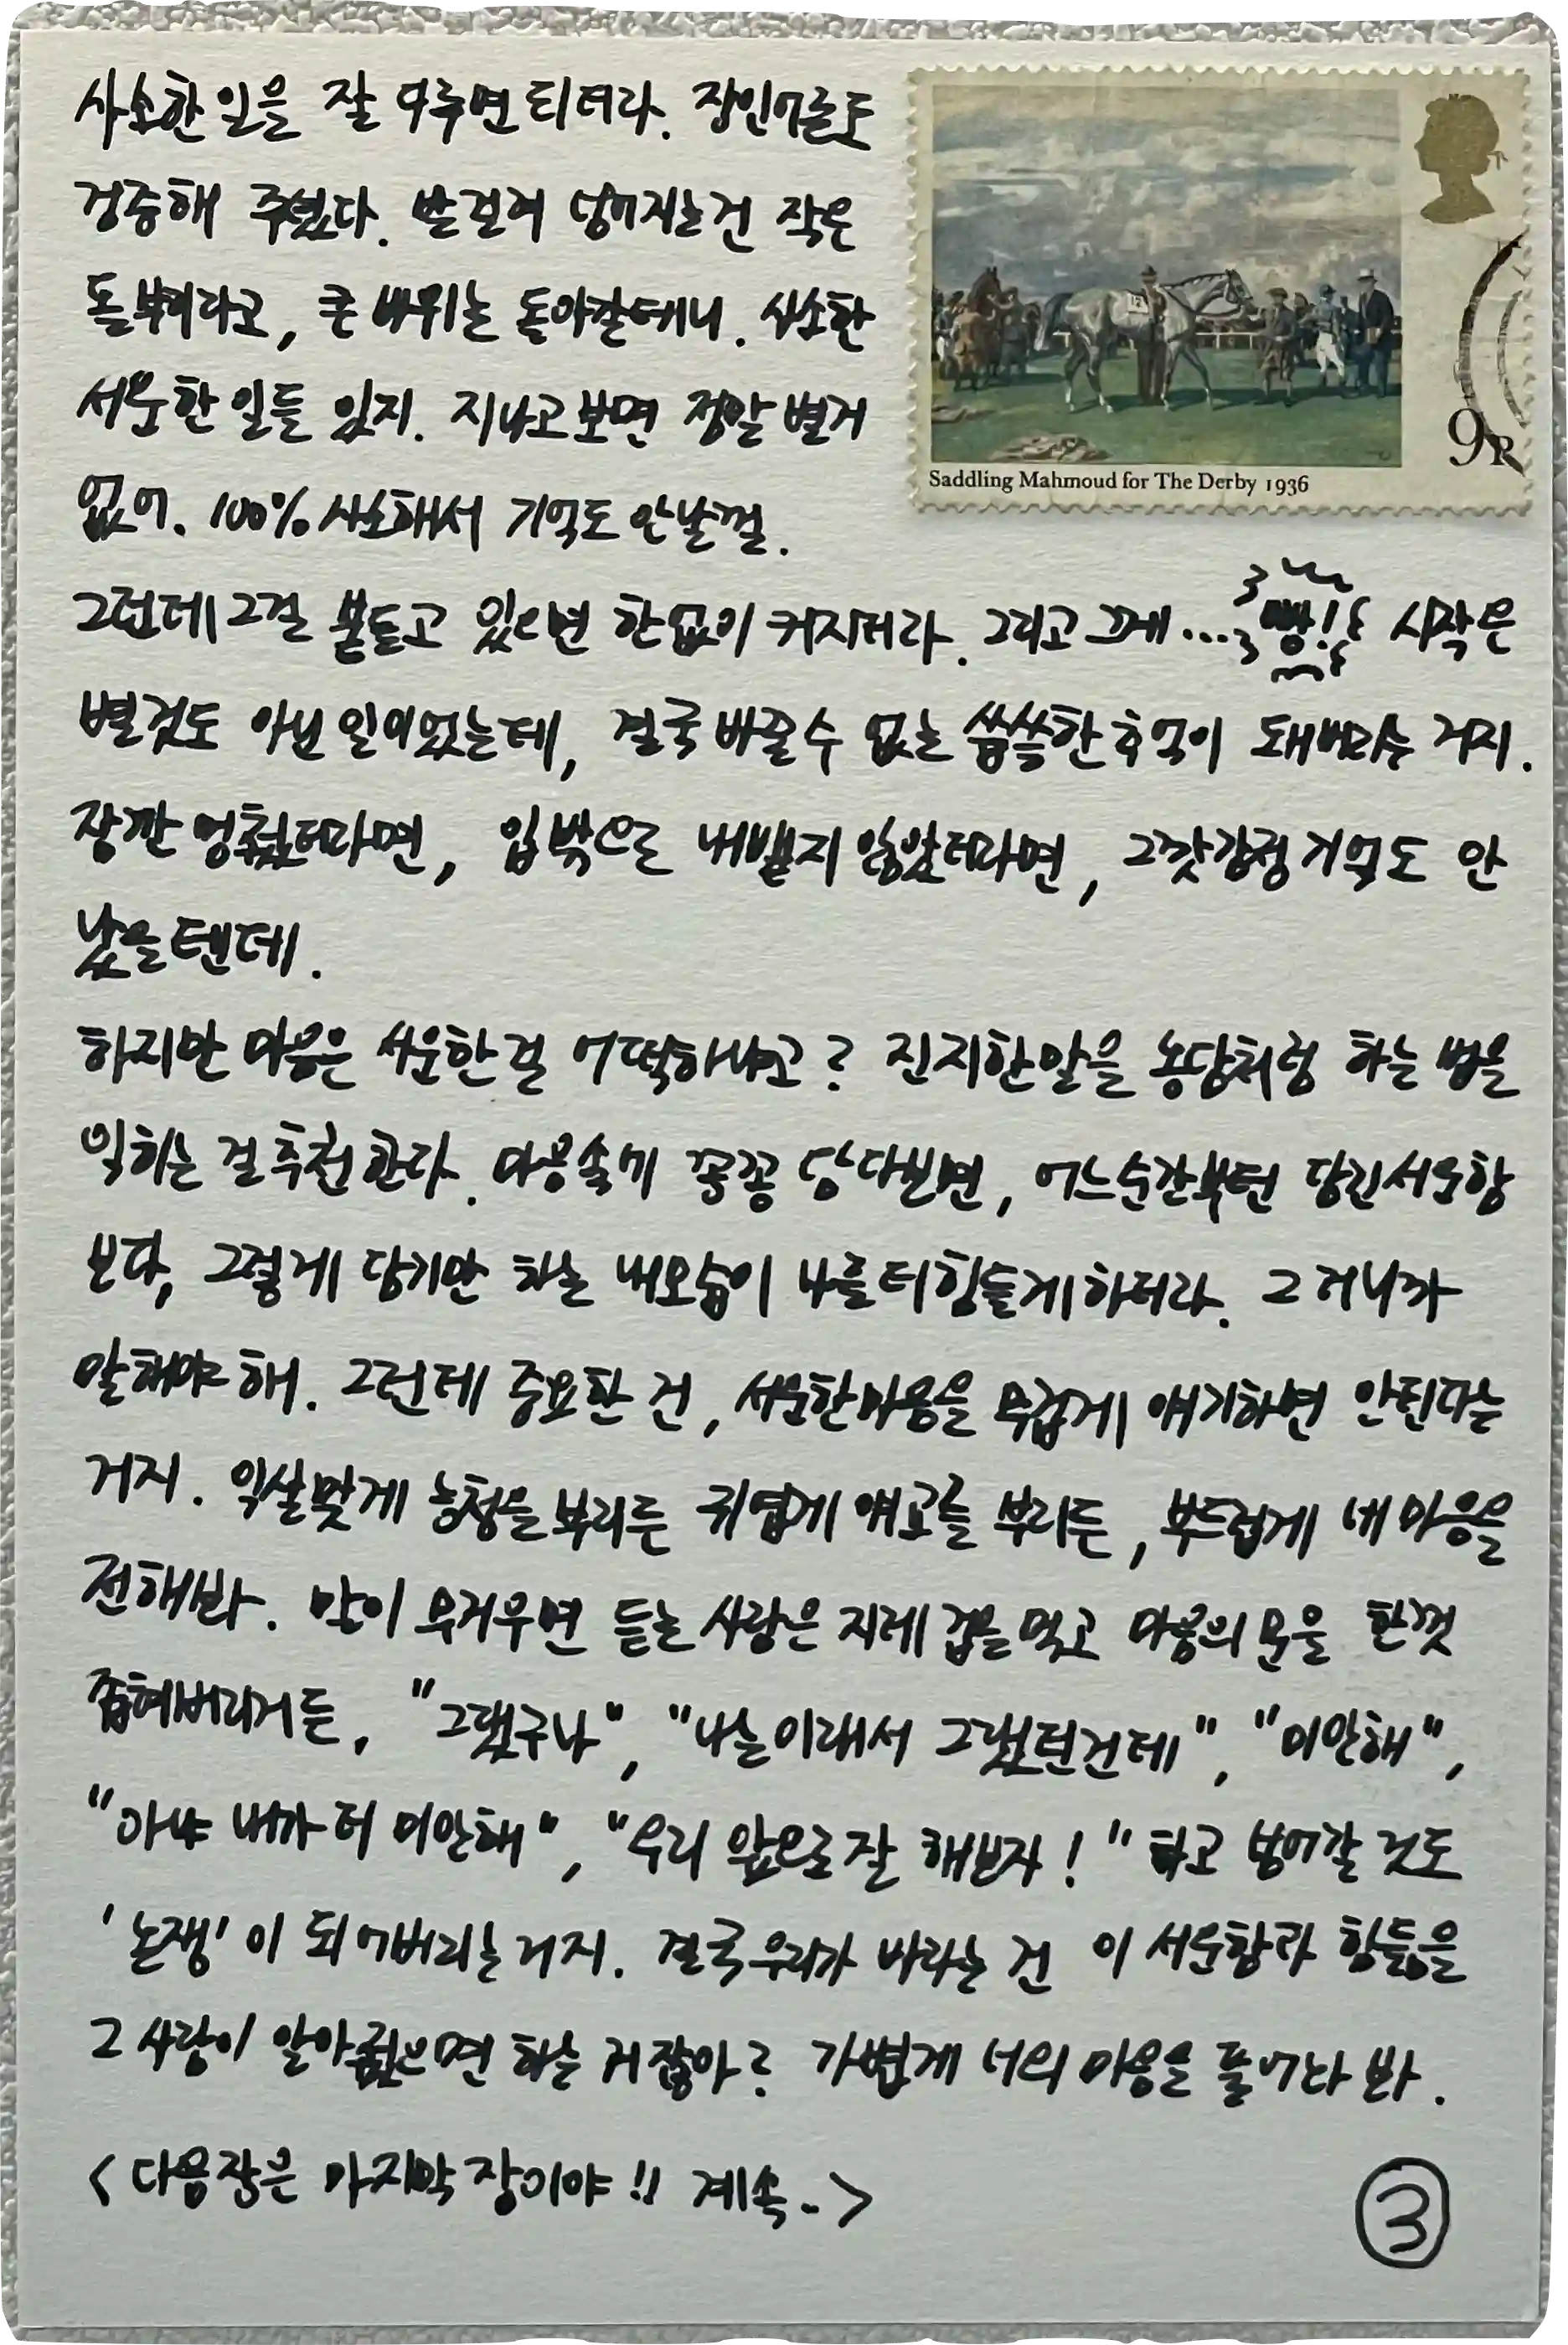 사소한 일을 잘 다루면 되더라. 장인어른도
검증해 주셨다. 발 걸려 넘어지는 건 작은
돌뿌리라고, 큰 바위는 돌아갈테니. 사소한
서운한 일들 있지. 지나고보면 정말 별거
없어. 100% 사소해서 기억도 안날껄.
그런데 그걸 붙들고 있으면 한없이 커지더라. 그리고 그게... 빵! 시작은
별것도 아닌 일이었는데, 결국 바꿀 수 없는 씁쓸한 추억이 돼버리는 거지.
잠깐 멈췄더라면, 입 밖으로 내뱉지 않았더라면, 그깟 감정 기억도 안
났을텐데.
하지만 마음은 서운한 걸 어떡하냐고? 진지한 말을 농담처럼 하는 법을
익히는 걸 추천한다. 마음속에 꽁꽁 담다보면, 어느순간부턴 담긴 서운함
보다, 그렇게 담기만 하는 내 모습이 나를 더 힘들게 하더라. 그러니까
말해야 해. 그런데 중요한 건, 서운한 마음을 무겁게 얘기하면 안된다는
거지. 익살맞게 능청을 부리든 귀엽게 애교를 부리든, 부드럽게 네 마음을
전해봐. 말이 무거우면 듣는 사람은 지레 겁을 먹고 마음의 문을 한껏
좁혀버리거든, "그랬구나", "나는 이래서 그랬던건데", "미안해",
"아냐 내가 더 미안해", "우리 앞으로 잘 해보자!" 하고 넘어갈 것도
'논쟁'이 되어버리는거지. 결국 우리가 바라는 건 이 서운함과 힘듦을
그 사람이 알아줬으면 하는 거잖아? 가볍게 너의 마음을 풀어놔 봐.
<다음장은 마지막 장이야!! 계속->
③
Saddling Mahmoud for The Derby 1936
9P